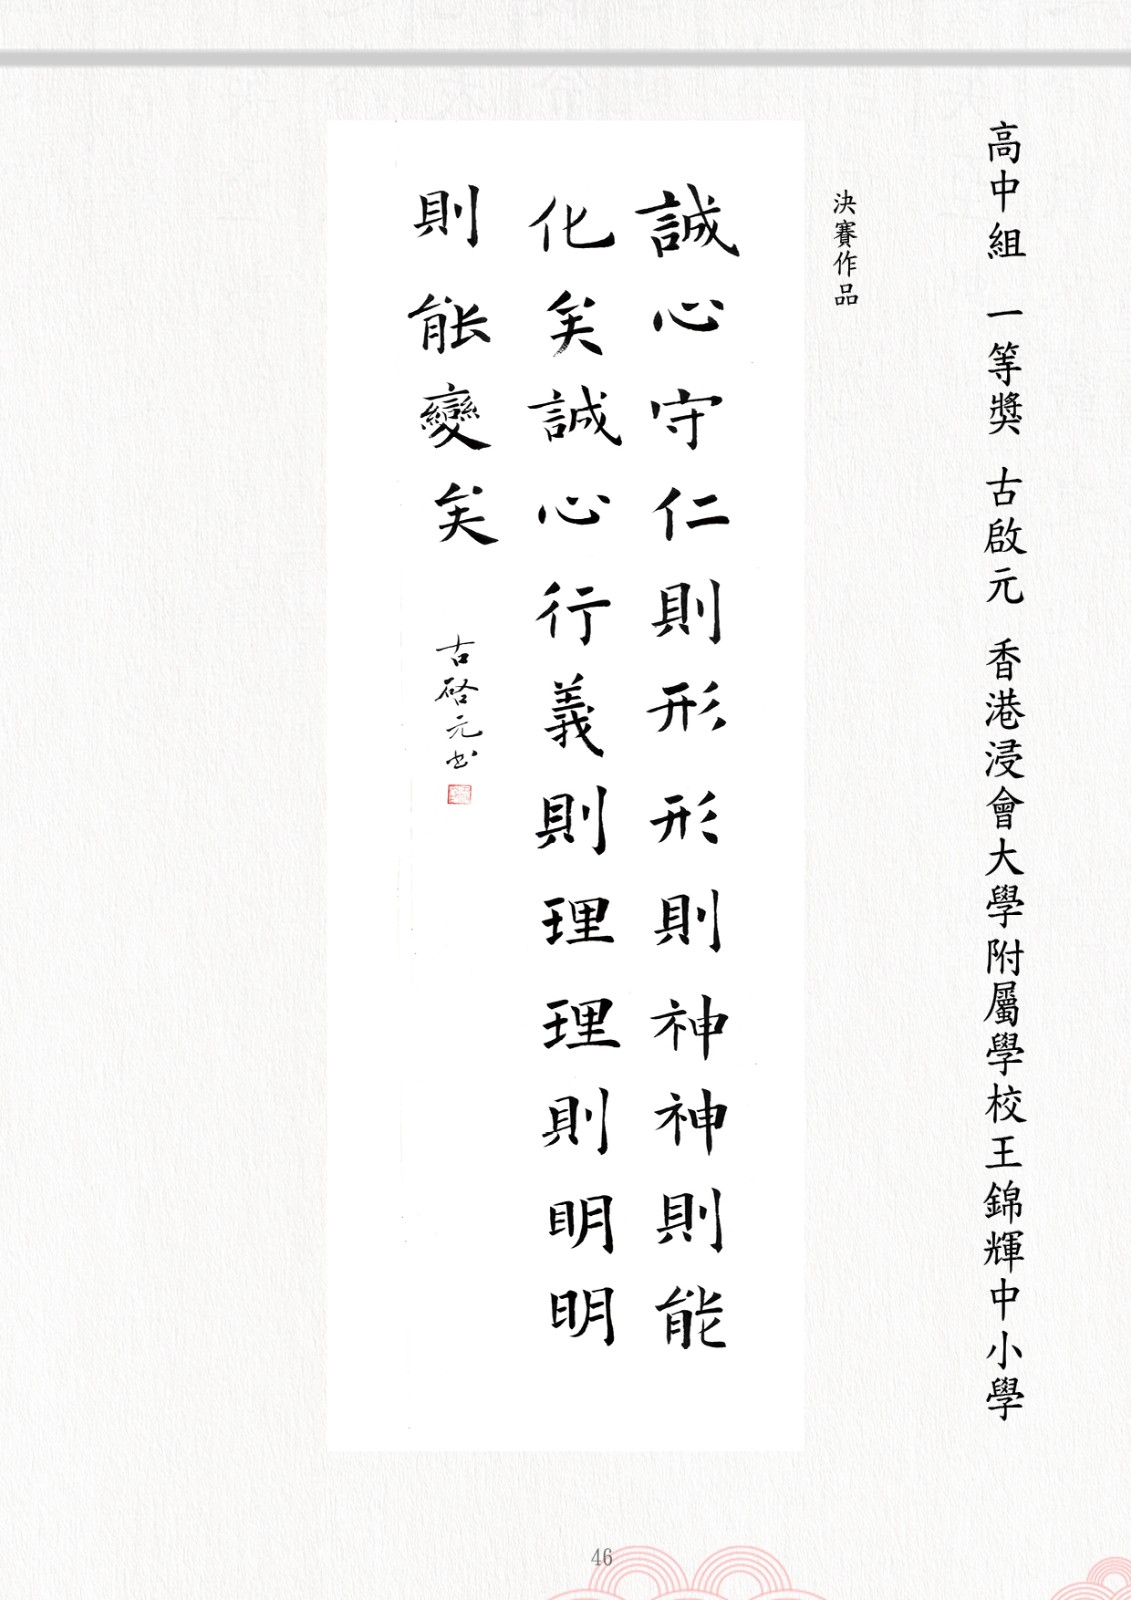 高中組 一等獎 古啟元 香港浸會大學附屬學校王錦輝中小學
決賽作品
誠心守仁則形形則神神則能
化矣誠心行義則理理則明明
則能變矣
古啓元书
46